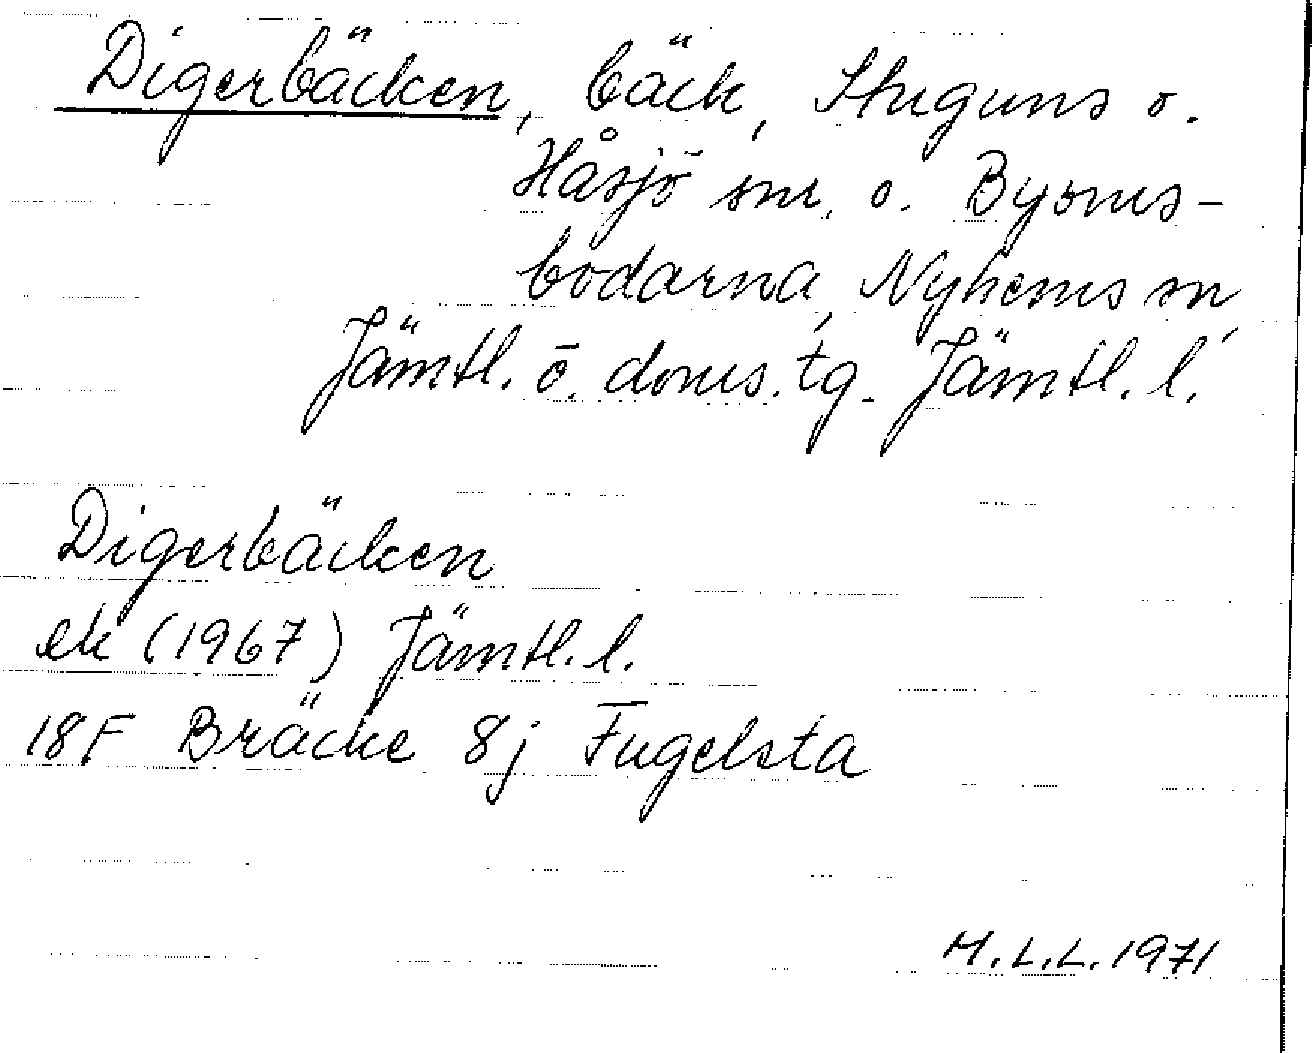 Digerbäcken, bäck, Stuguns o.
Håsjö snr, o. Byoms-
bodarna, Nyhems sn,
Jämtl. ö. doms. tg. Jämtl. l.
Digerbäcken
ek (1967) Jämtl. l.
18F Bräcke 8j Fugelsta
M.L.L. 1971